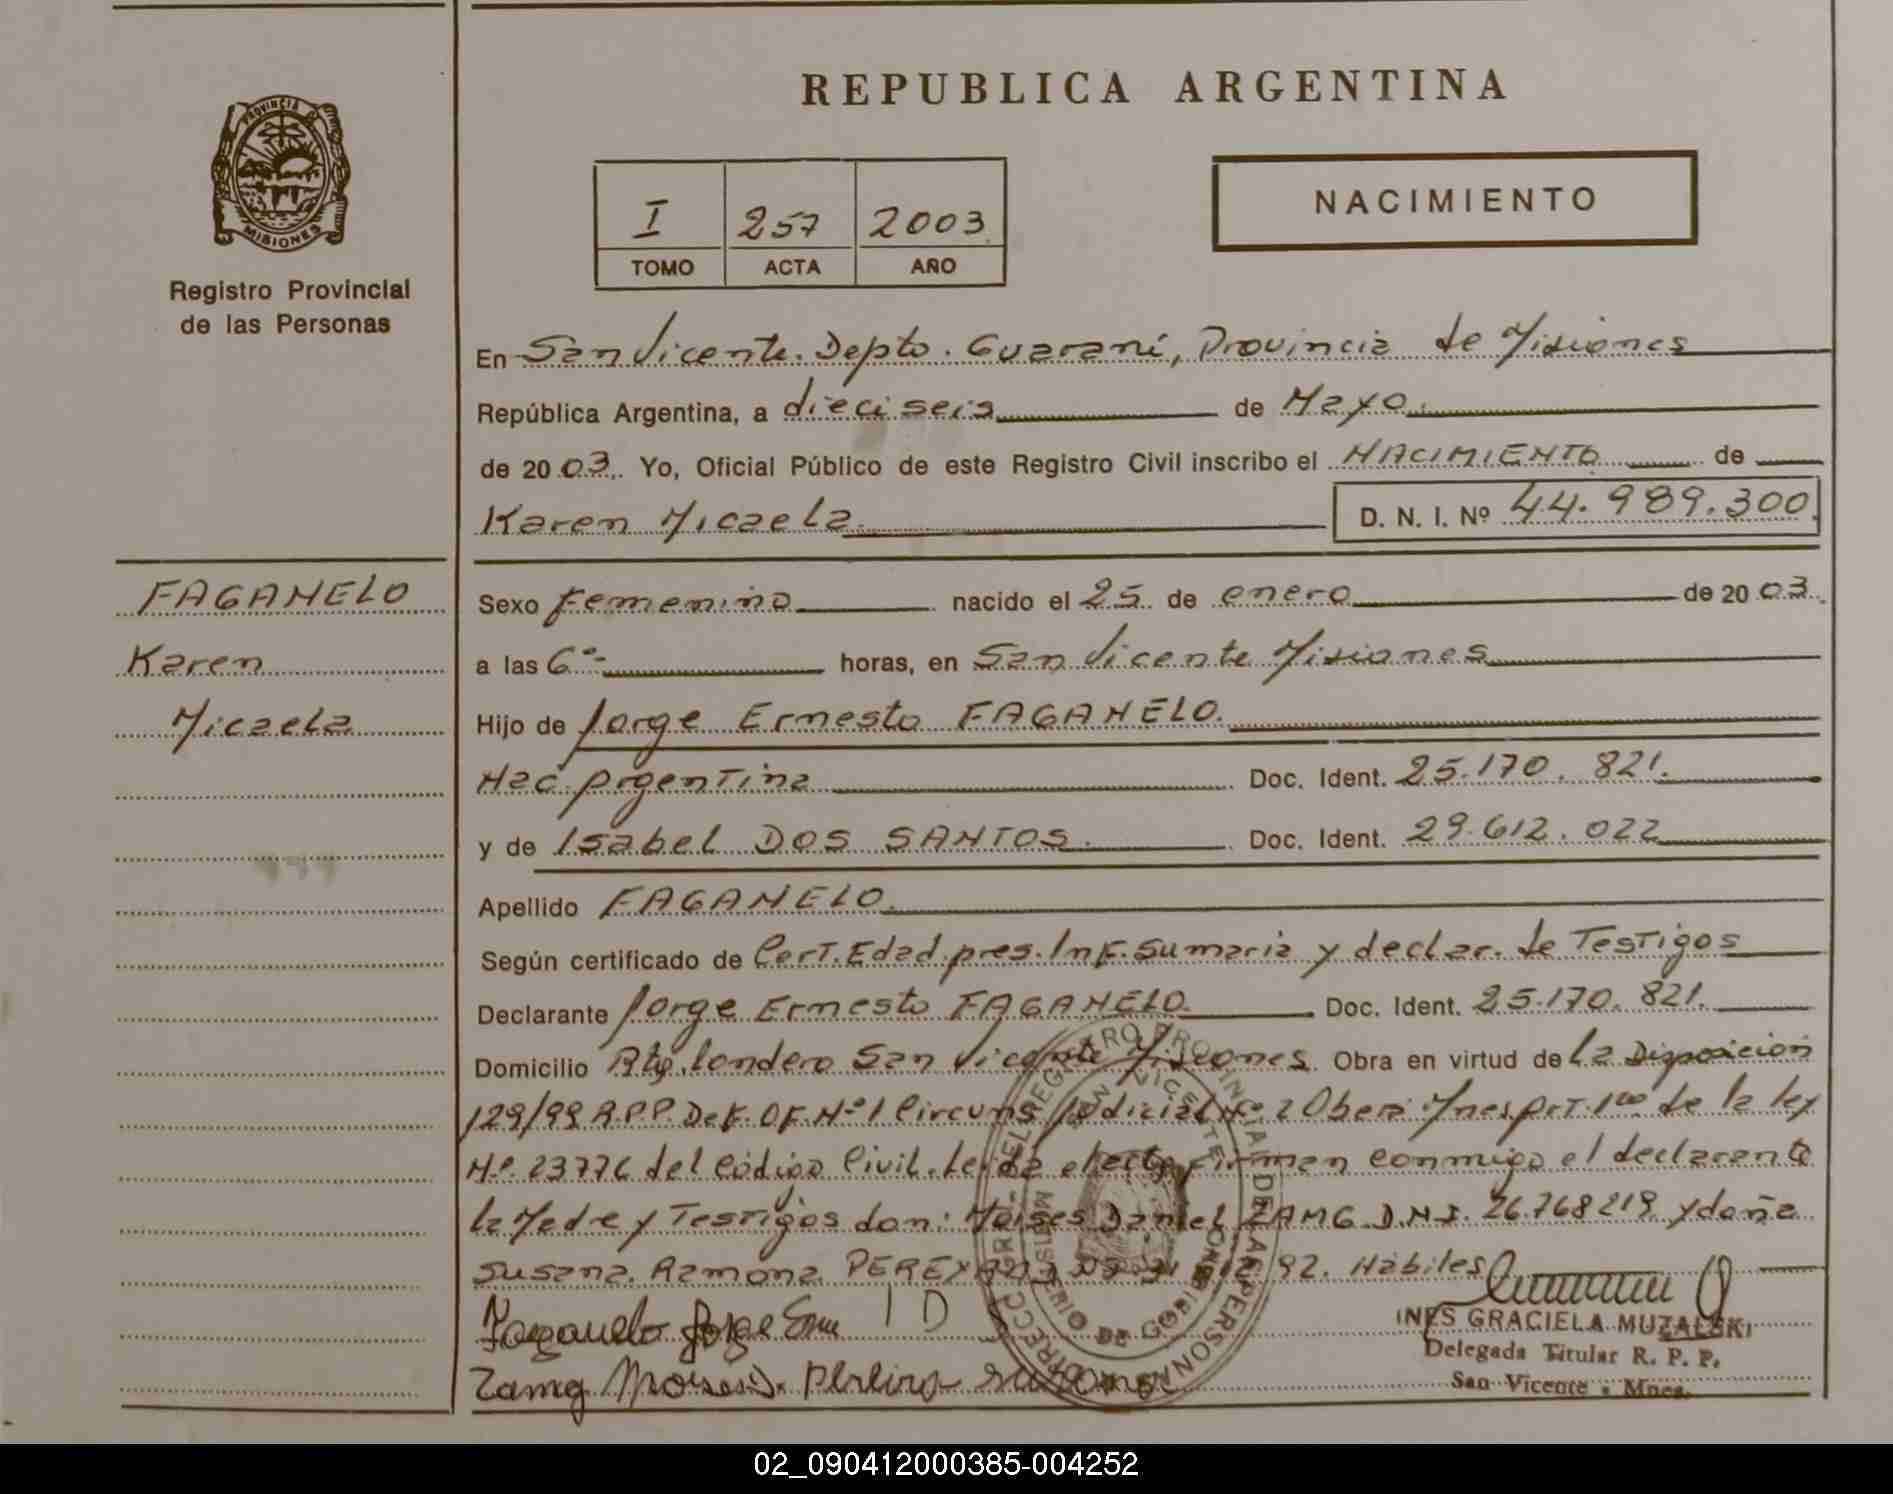 REPUBLICA ARGENTINA
PROVINCIA DE
MISIONES
Registro Provincial
de las Personas
I 257 2003
TOMO ACTA AÑO
NACIMIENTO
En San Vicente. Depto. Guaraní, Provincia de Misiones
República Argentina, a dieciseis de Mayo.
de 2003. Yo, Oficial Público de este Registro Civil inscribo el NACIMIENTO de
Karen Micaela. D. N. I. Nº 44.989.300.
FAGANELO
Karen
Micaela
Sexo Femenino nacido el 25 de enero de 2003.
a las 6º- horas, en San Vicente Misiones
Hijo de Jorge Ernesto FAGANELO.
Nac. Argentina Doc. Ident. 25.170.821.
y de Isabel DOS SANTOS. Doc. Ident. 29.612.022
Apellido FAGANELO.
Según certificado de Cert. Edad. pres. Inf. Sumaria y declar. de Testigos
Declarante Jorge Ernesto FAGANELO. Doc. Ident. 25.170.821.
Domicilio Londero San Vicente Misiones. Obra en virtud de la Disposicion
129/99 R.P.P. Def. Of. Nº 1 Circuns. Judicial Nº 2 Obera Mnes. de la ley
Nº 23776 del Código Civil. Leida el acta, firman conmigo el declarante
la Madre y Testigos don: Moises Daniel ZAMG. D.N.I. 26.768.219 y doña
Susana Ramona 92. Habiles
Faganelo Jorge I D S
Zamg Moises D.
INES GRACIELA MUZALSKI
Delegada Titular R. P. P.
San Vicente - Mnes.
REGISTRO PROVINCIAL DE LAS PERSONAS
SAN VICENTE
MINISTERIO DE GOBIERNO
02_090412000385-004252